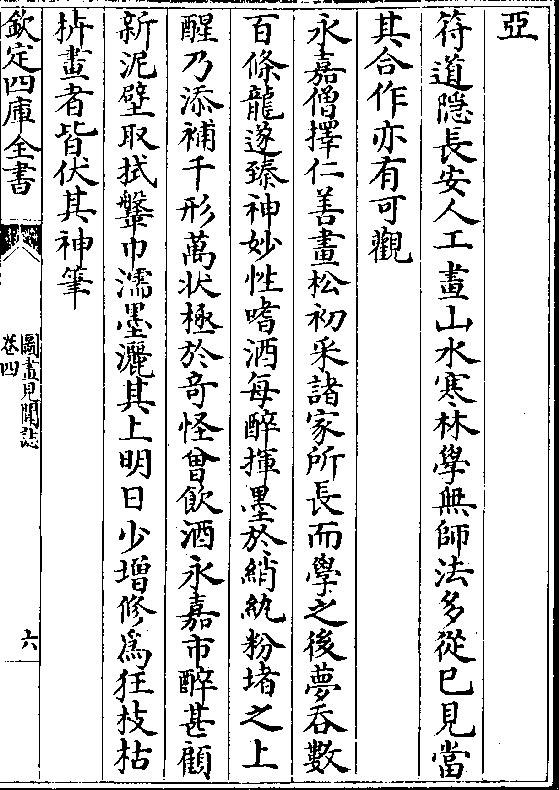 亞
符道隱長安人工畫山水寒林學無師法多從已見當
其合作亦有可觀
永嘉僧擇仁善畫松初采諸家所長而學之後夢吞數
百條龍遂臻神妙性嗜酒每醉揮墨於綃紈粉堵之上
醒乃添補千形萬状極於竒怪曾飲酒永嘉市醉甚顧
新泥壁取拭盤巾濡墨灑其上明日少增修為狂枝枯
枿畫者皆伏其神筆
欽定四庫全書
圖畫見聞誌
卷四
六